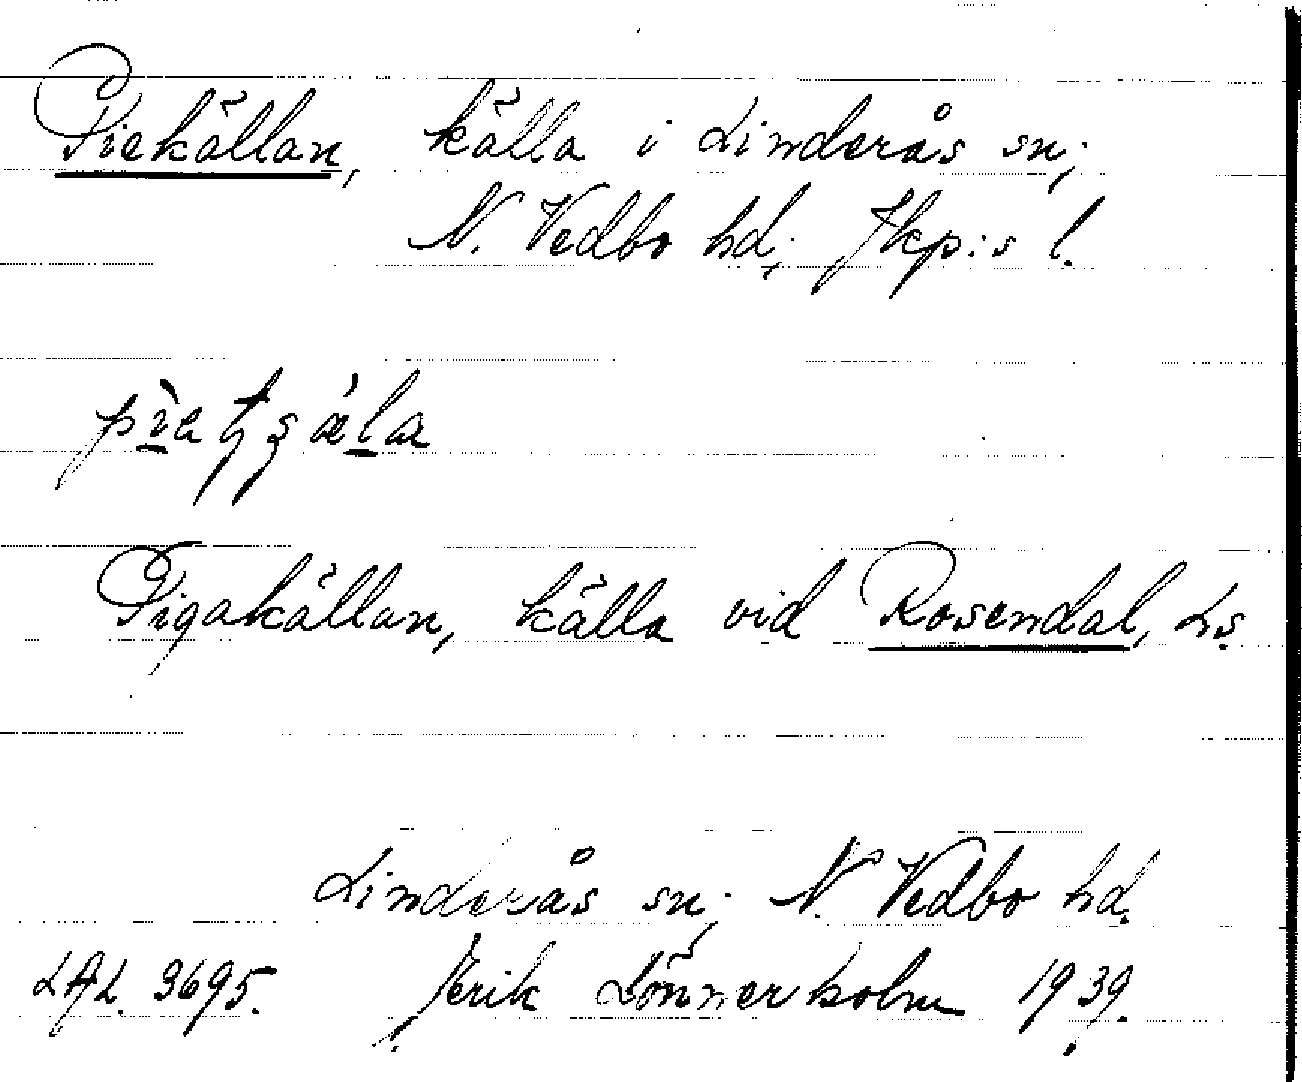 Piekällan, källa i Linderås sn;
N. Vedbo hd; Jkp:s l.
Pigakällan, källa vid Rosendal, Ls.
Linderås sn; N. Vedbo hd.
LAL. 3695. J. Erik Lönnerholm 1939.